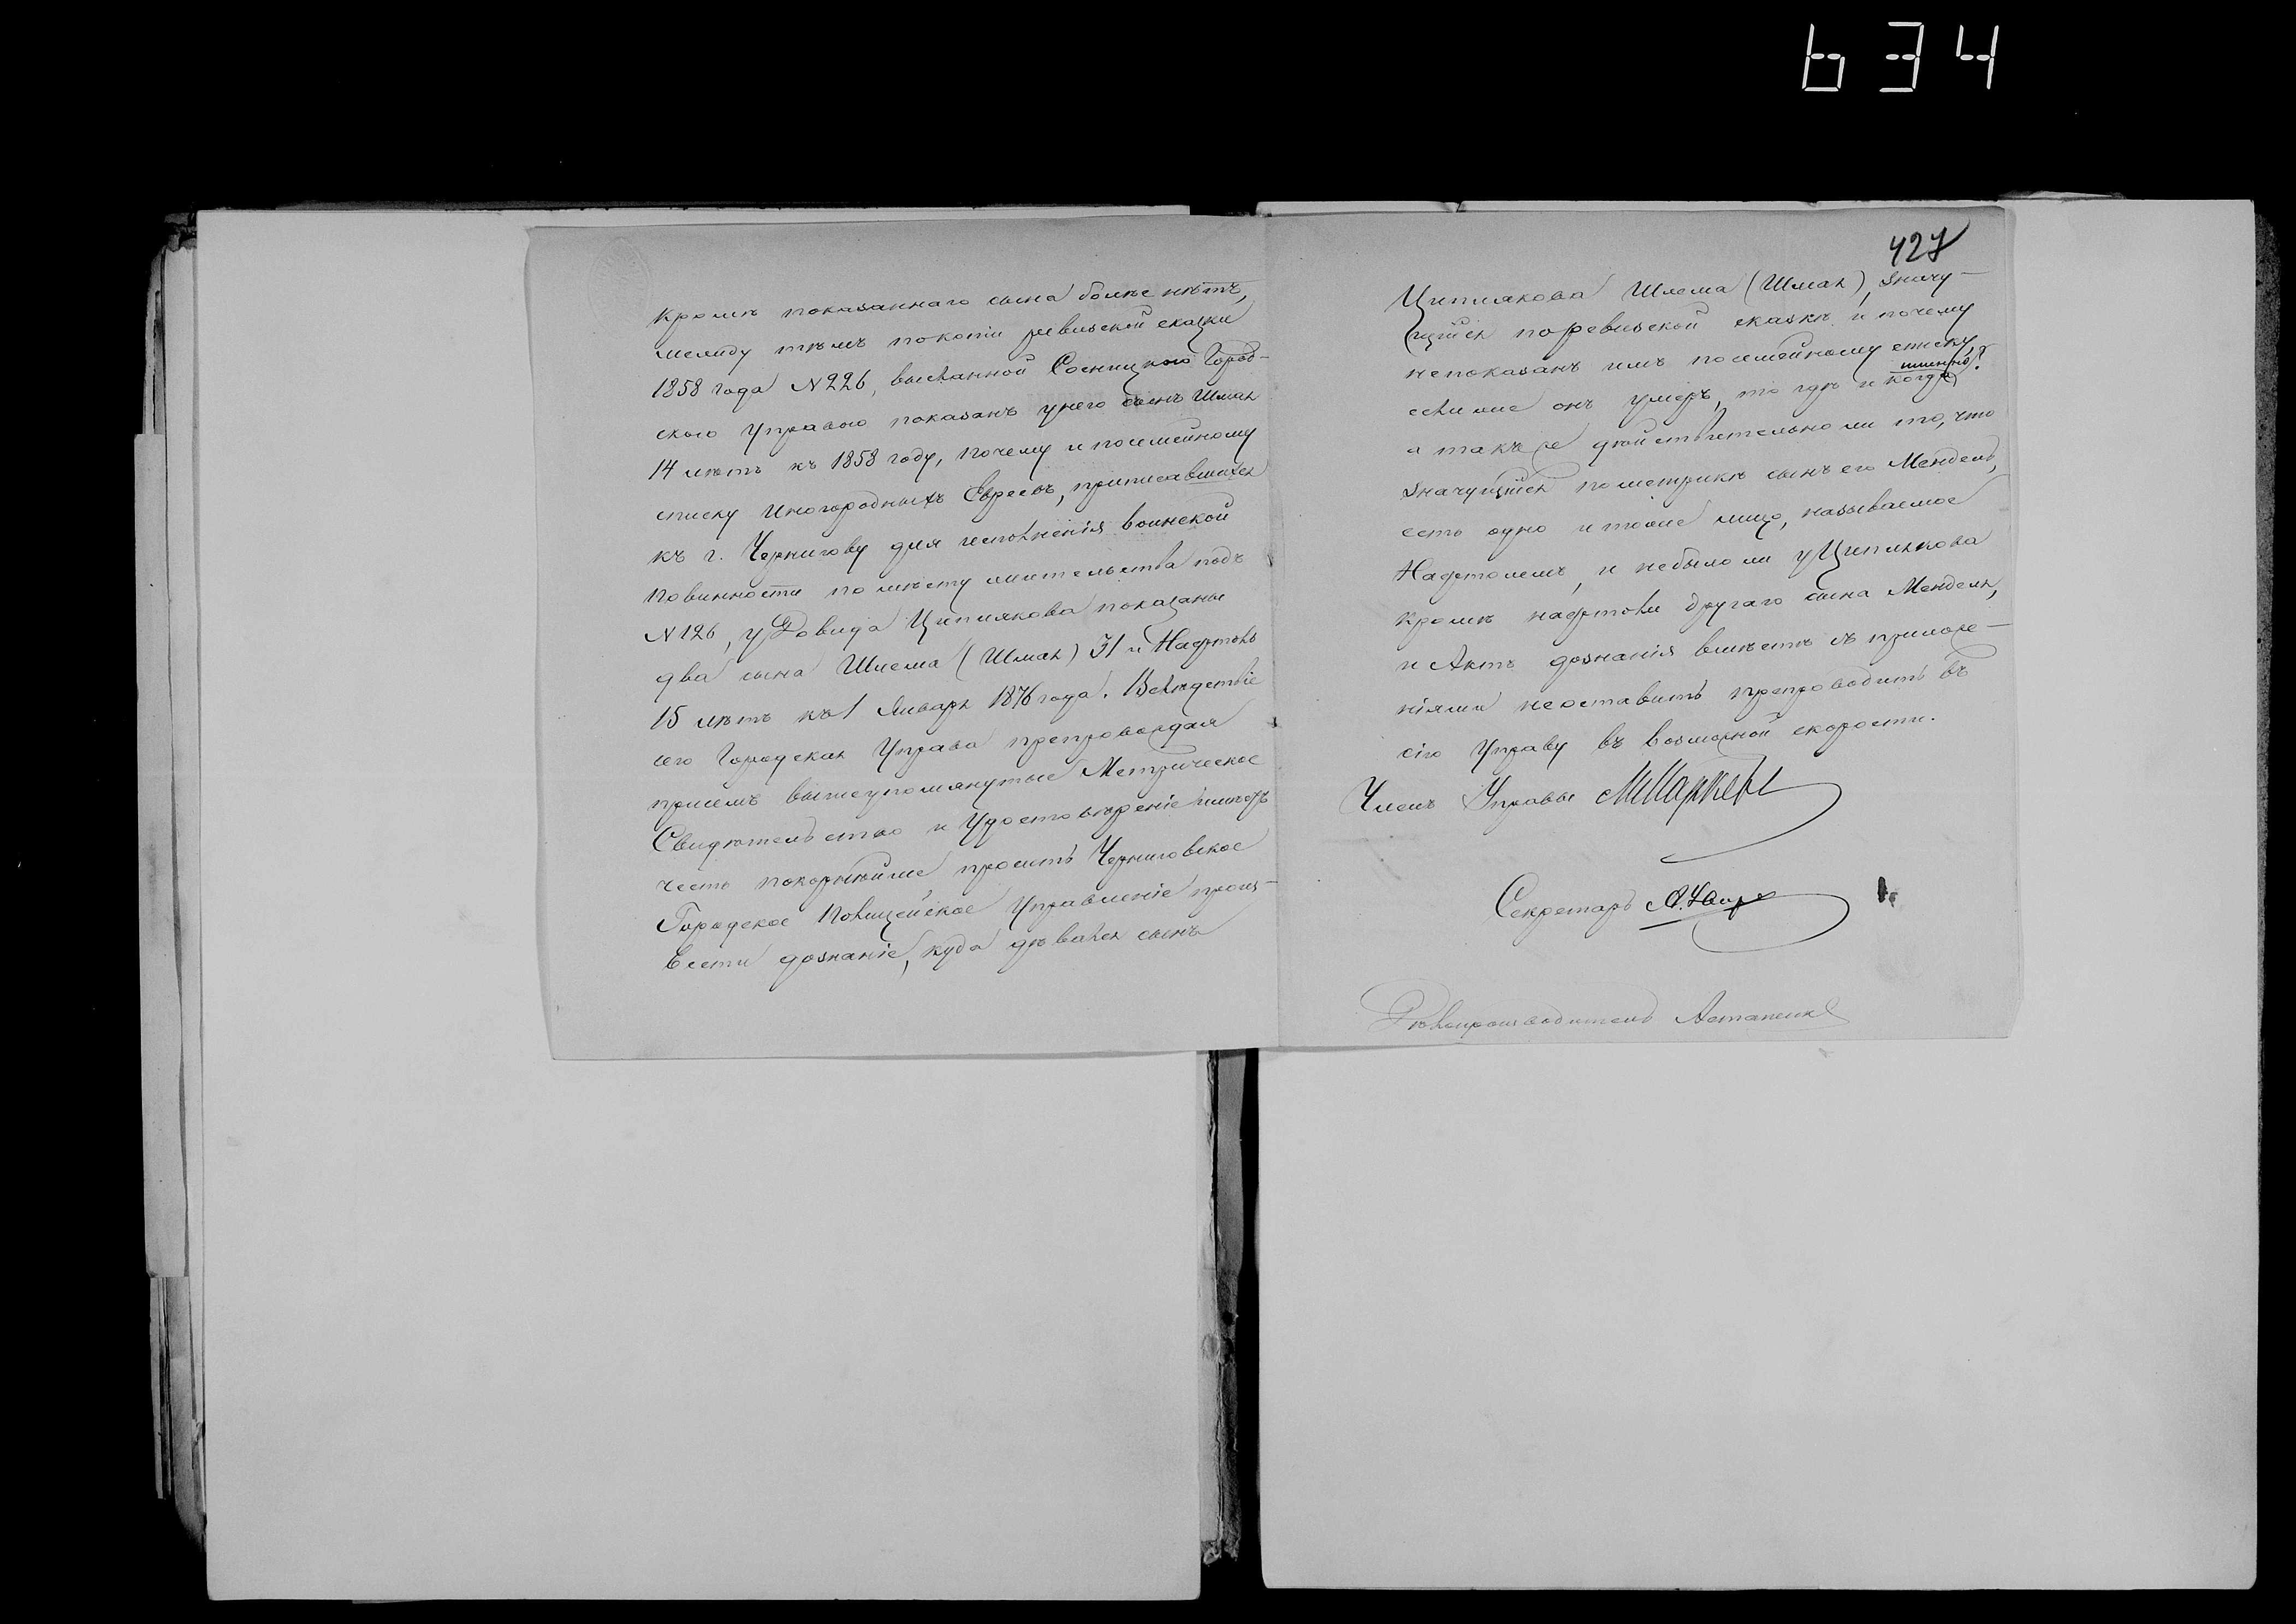 634
427
Кромѣ показаннаго сына болѣе нѣтъ,
между тѣмъ покопіи ревизской сказки
1858 года N 226, выданной Сосницкою Город-
скою Управою показанъ унего сынъ Шмая
14 лѣтъ къ 1858 году, почему и посемейному
списку Иногородныхъ Евреевъ, приписавшихся
къ г. Чернигову для исполненія воинской
повинности по мѣсту жительства подъ
N 126, у Довида Циплякова показаны
два сына Шлема (Шмая) 31 и Нафтоль
15 лѣтъ къ 1 Января 1876 года. Вслѣдствіе
сего Городская Управа препровождая
присемъ вышеупомянутые Метрическое
Свидѣтельство и Удостовѣреніе имѣетъ
честь покорнѣйше просить Черниговское
Городское Полицейское Управленіе произ-
вести дознаніе, куда дѣвался сынъ
Циплякова Шлема (Шмая), значу-
щійся поревизской сказкѣ и почему
непоказанъ имъ посемейному списку,
если же онъ умеръ, то гдѣ и когда именно?
а такъ же дѣйствительно ли то, что
значущійся пометрикѣ сынъ его Мендель,
есть одно и тоже лицо, называемое
Нафтолемъ, и небыло ли у Циплякова
кромѣ нафтоли другаго сына Менделя,
и Актъ дознанія вмѣстѣ съ приложе-
ніями неоставить препроводить въ
сію Управу въ возможной скорости.
Членъ Управы
Секретарь
Дѣлопроизводитель Астапенко